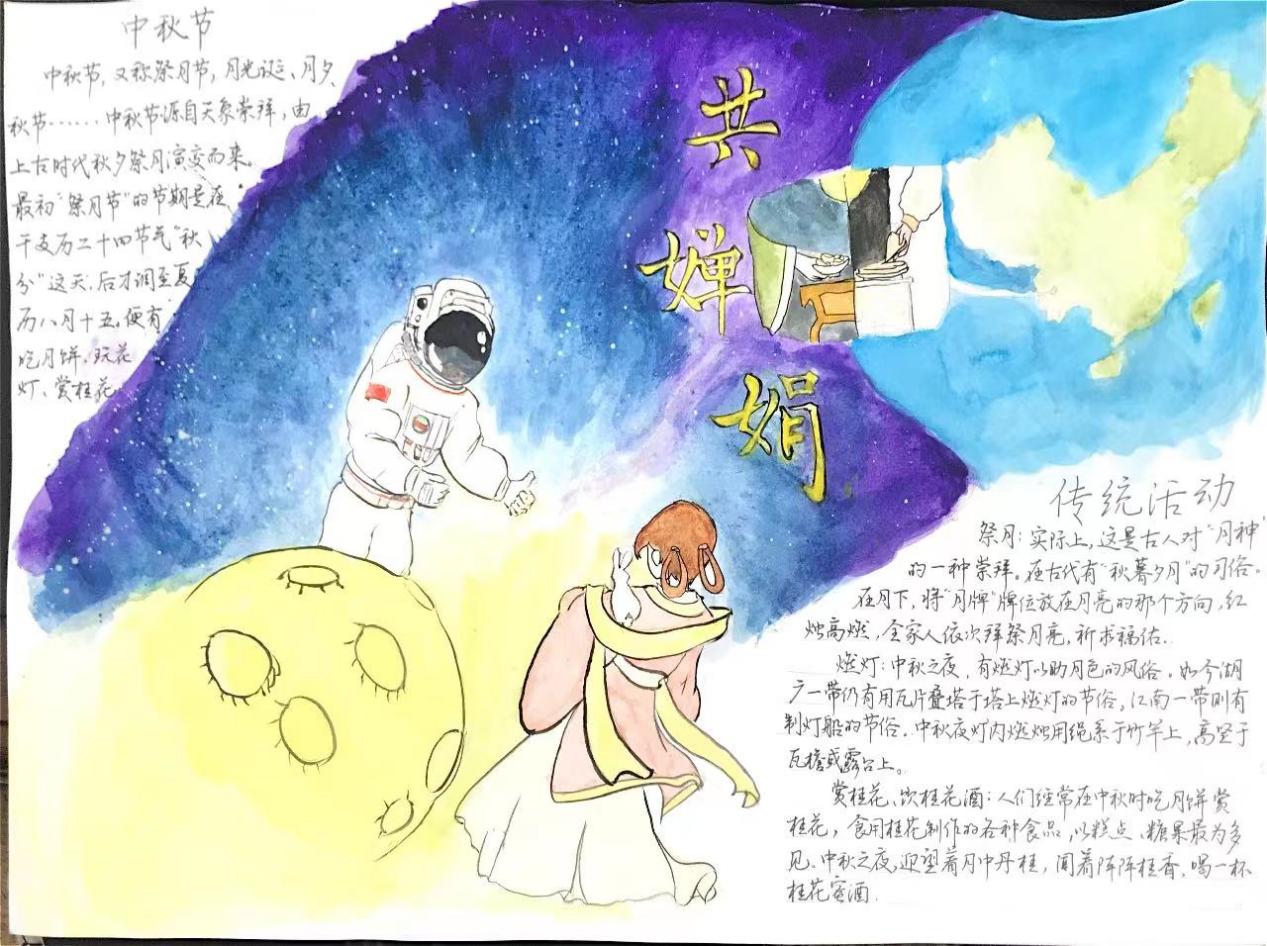 中秋节
中秋节，又称祭月节，月光诞、月夕、
秋节……中秋节源自天象崇拜，由
上古时代秋夕祭月演变而来。
最初“祭月节”的节期是在
干支历二十四节气“秋
分”这天，后才调至夏
历八月十五，便有
吃月饼，玩花
灯、赏桂花
共
婵
娟
传统活动
祭月：实际上，这是古人对“月神”
的一种崇拜。在古代有“秋暮夕月”的习俗。
在月下，将“月牌”牌位放在月亮的那个方向，红
烛高燃，全家人依次拜祭月亮，祈求福佑.
燃灯：中秋之夜，有燃灯以助月色的风俗。如今湖
广一带仍有用瓦片叠塔于塔上燃灯的节俗，江南一带则有
制灯船的节俗．中秋夜灯内燃烛用绳系于竹竿上，高竖于
瓦檐或露台上。
赏桂花、饮桂花酒：人们经常在中秋时吃月饼赏
桂花，食用桂花制作的各种食品，以糕点、糖果最为多
见。中秋之夜，迎望着月中丹桂，闻着阵阵桂香，喝一杯
桂花蜜酒.